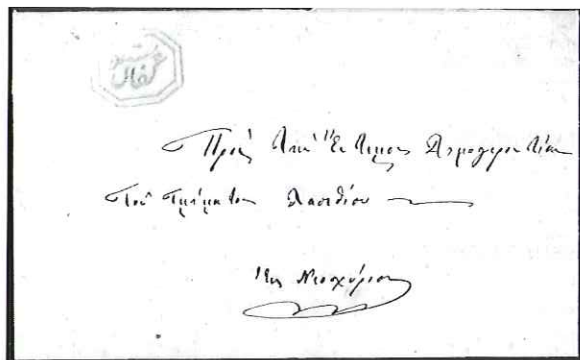 Πρὸς τὴν Ἔντιμον Δημογεροντίαν
τοῦ τμήματος Λασιθίου
Εἰς Νεοχώριον